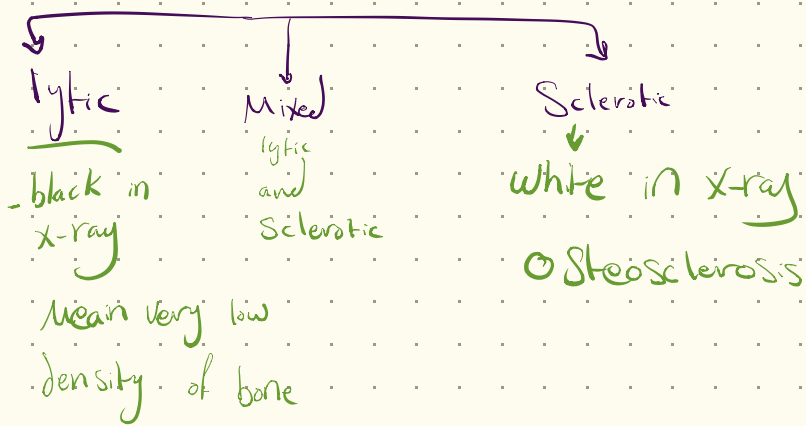 lytic
- black in
x-ray
Mean very low
density of bone
Mixed
lytic
and
Sclerotic
Sclerotic
white in x-ray
Osteosclerosis